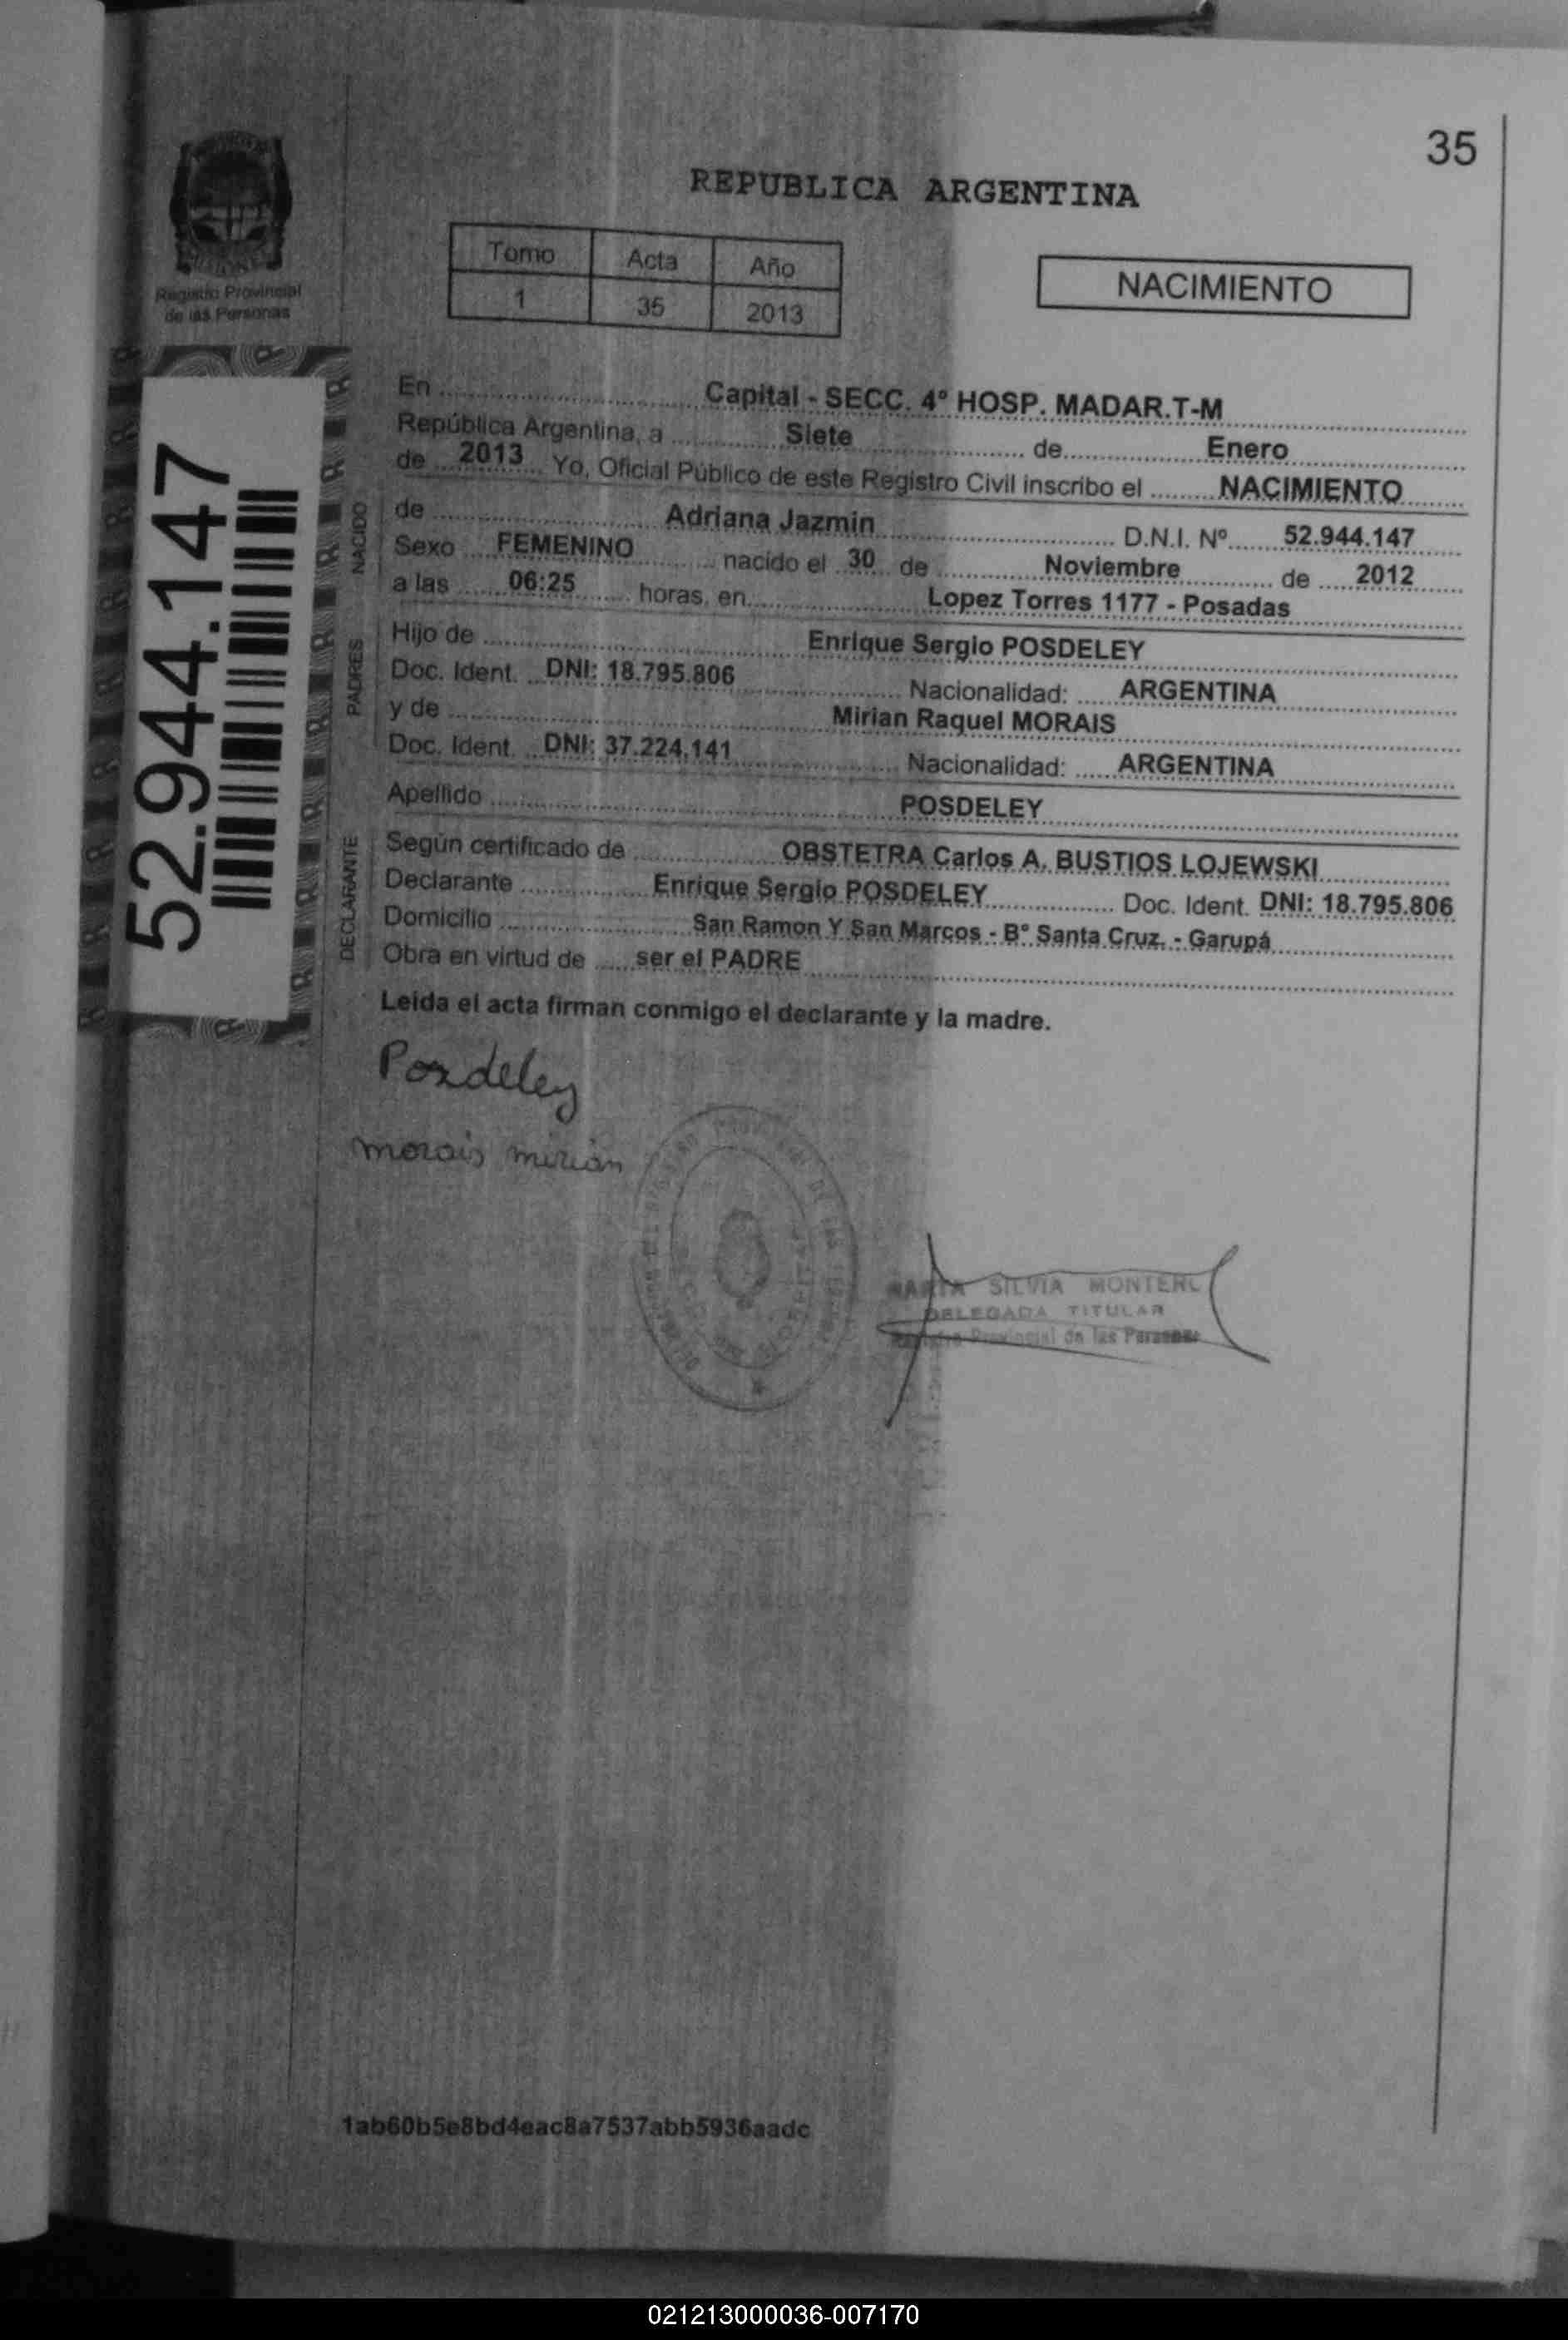 35
REPUBLICA ARGENTINA
Registro Provincial
de las Personas
Tomo Acta Año
1 35 2013
NACIMIENTO
52.944.147
En Capital - SECC. 4° HOSP. MADAR.T-M
República Argentina, a Siete de Enero
de 2013 Yo, Oficial Público de este Registro Civil inscribo el NACIMIENTO
NACIDO
de Adriana Jazmin D.N.I. Nº 52.944.147
Sexo FEMENINO nacido el 30 de Noviembre de 2012
a las 06:25 horas, en Lopez Torres 1177 - Posadas
PADRES
Hijo de Enrique Sergio POSDELEY
Doc. Ident. DNI: 18.795.806 Nacionalidad: ARGENTINA
y de Mirian Raquel MORAIS
Doc. Ident. DNI: 37.224.141 Nacionalidad: ARGENTINA
Apellido POSDELEY
DECLARANTE
Según certificado de OBSTETRA Carlos A. BUSTIOS LOJEWSKI
Declarante Enrique Sergio POSDELEY Doc. Ident. DNI: 18.795.806
Domicilio San Ramon Y San Marcos - B° Santa Cruz. - Garupá
Obra en virtud de ser el PADRE
Leida el acta firman conmigo el declarante y la madre.
Posdeley
morais mirian
SILVIA MONTERO
DELEGADA TITULAR
Registro Provincial de las Personas
1ab60b5e8bd4eac8a7537abb5936aadc
021213000036-007170